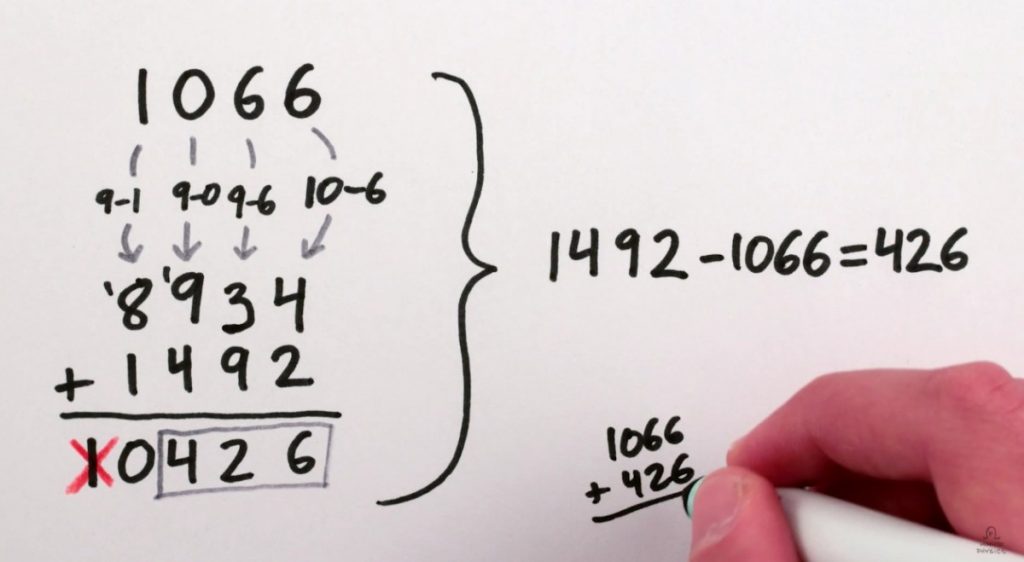 1066
9-1 9-0 9-6 10-6
'8'934
+1492
10426
1492-1066=426
1066
+426